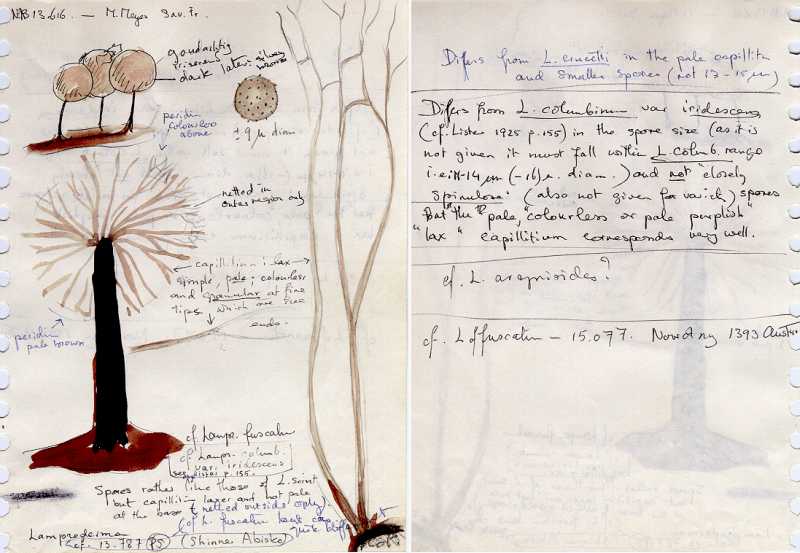 NB 13.616. — M. Meyer Sav. Fr.
goudachtig
iriserend
dark later: silvery
bronze
± 9 µ diam.
peridium
colourless
above
netted in
outer region only
capillitium: lax
simple, pale; colourless
and granular at fine
tips, which are free
ends.
peridium
pale brown
cf. Lampr. fuscatum
cf. Lampr. columb.
var. iridescens
see Lister p. 155.
Spores rather like those of L. scint
but capillitium laxer and not pale
at the base (netted outside only).
Lamproderma
cf. 13.787 PS (Shinner Abisko)
Differs from L. cruchii in the pale capillitium
and smaller spores (not 12 - 15 µm)
Differs from L. columbinum var iridescens
(cf. Lister 1925 p. 155) in the spore size (as it is
not given it must fall within L. columb. range
i.e. 11-14 µm (-16) µ. diam.) and not "closely
spinulose" (also not given for var. ir.) spores
But the "pale," "colourless or pale purplish"
"lax" capillitium corresponds very well.
cf. L. arcyrioides?
cf. L. fuscatum — 15.077. Nowotny 1393 Austr